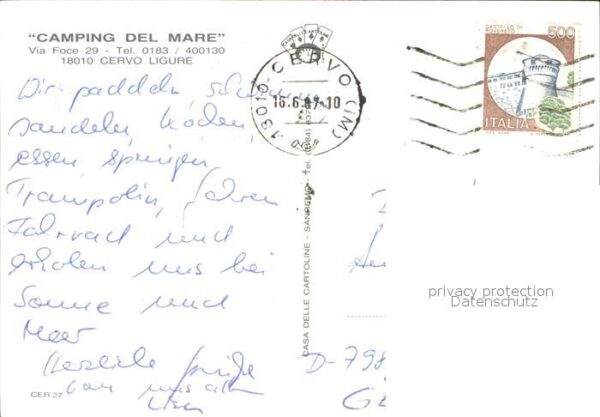 "CAMPING DEL MARE"
Via Foce 29 - Tel. 0183 / 400130
18010 CERVO LIGURE
Wir paddeln,
sandeln,
essen springen
Trampolin, fahren
Fahrrad und
erholen uns bei
Sonne und
Meer
Herzliche Grüße
von uns allen
CER 27
18010 CERVO (IM)
16.6.87-10
CASA DELLE CARTOLINE - SANREMO - Tel. (0184)
CASTELLO DI ROVERETO
500
ITALIA
privacy protection
Datenschutz
D-798